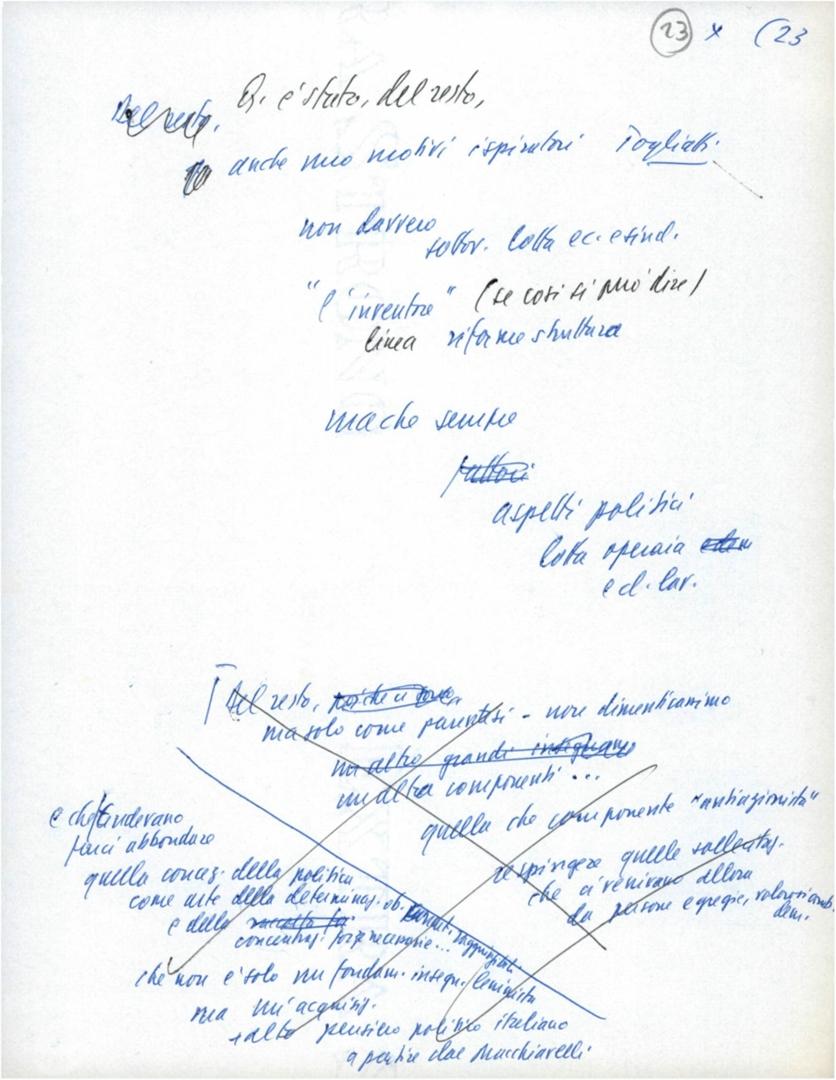 23 x (23
Del resto, Qi. c'è stato, del resto,
anche uno motivi ispiratori Togliatti.
non davvero
sottov. lotta ec. e sind.
"l'inventore" (se così si può dire)
linea riforme struttura
ma che sempre
fattori
aspetti politici
lotta operaia
e d. lav.
Del resto, poiché ci sono
ma solo come parentesi - non dimentichiamo
un altro grandi insegnam
un'altra componenti ...
quella che componente "antiazionista"
e che tendevano
farci abbondare
respingere quelle sollecitaz.
quella concez. della politica
che ci venivano allora
come arte della determinaz. ob.
da persone egregie, valorosi comb.
dem.
e della raccolta fo.
concentraz. forze necessarie... raggiungibili
che non è solo un fondam. insegn. leninista
ma un'acquisiz.
+ alto pensiero politico italiano
a partire dal Macchiavelli